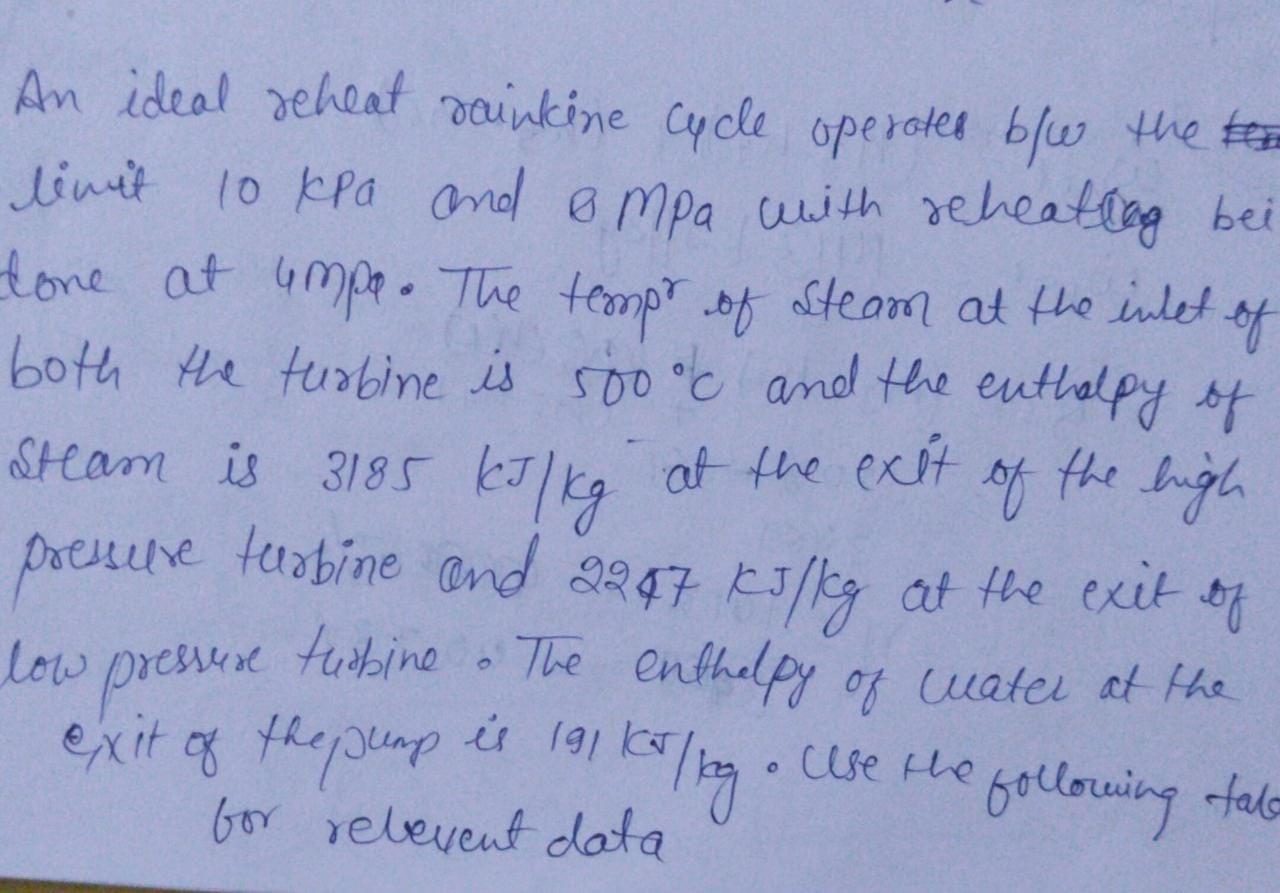 An ideal reheat rainkine cycle operates b/w the
limit 10 KPa and 8 Mpa with reheating bei
done at 4mpa. The tempr of steam at the inlet of
both the turbine is 500 °C and the enthalpy of
Steam is 3185 KJ/kg at the exit of the high
pressure turbine and 2247 KJ/kg at the exit of
low pressure turbine. The enthalpy of water at the
exit of the pump is 191 KJ/kg. Use the following tab
for relevent data